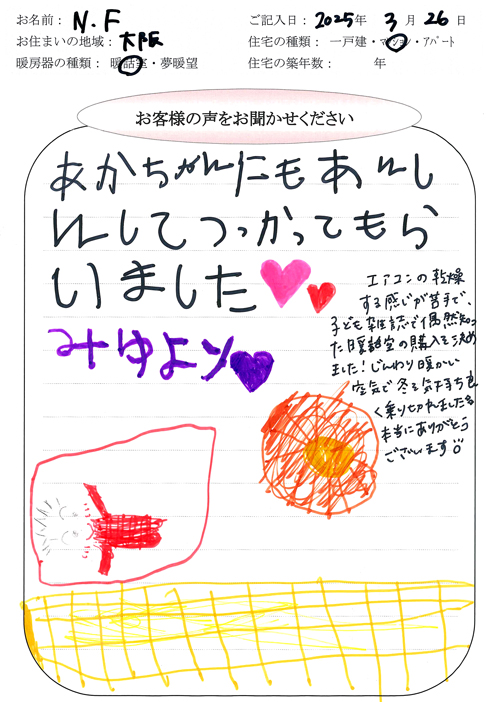 お名前： N.F ご記入日： 2025年 3月 26日
お住まいの地域： 大阪 住宅の種類： 一戸建・マンション・アパート
暖房器の種類： 暖話室・夢暖望 住宅の築年数： 年
お客様の声をお聞かせください
あかちゃんにもあんし
んしてつかってもら
いました
みゆより
エアコンの乾燥
する感じが苦手で、
子ども雑誌で偶然知っ
た暖話室の購入を決め
ました！じんわり暖かい
空気で冬を気持ち良
く乗り切れました
本当にありがとう
ございます